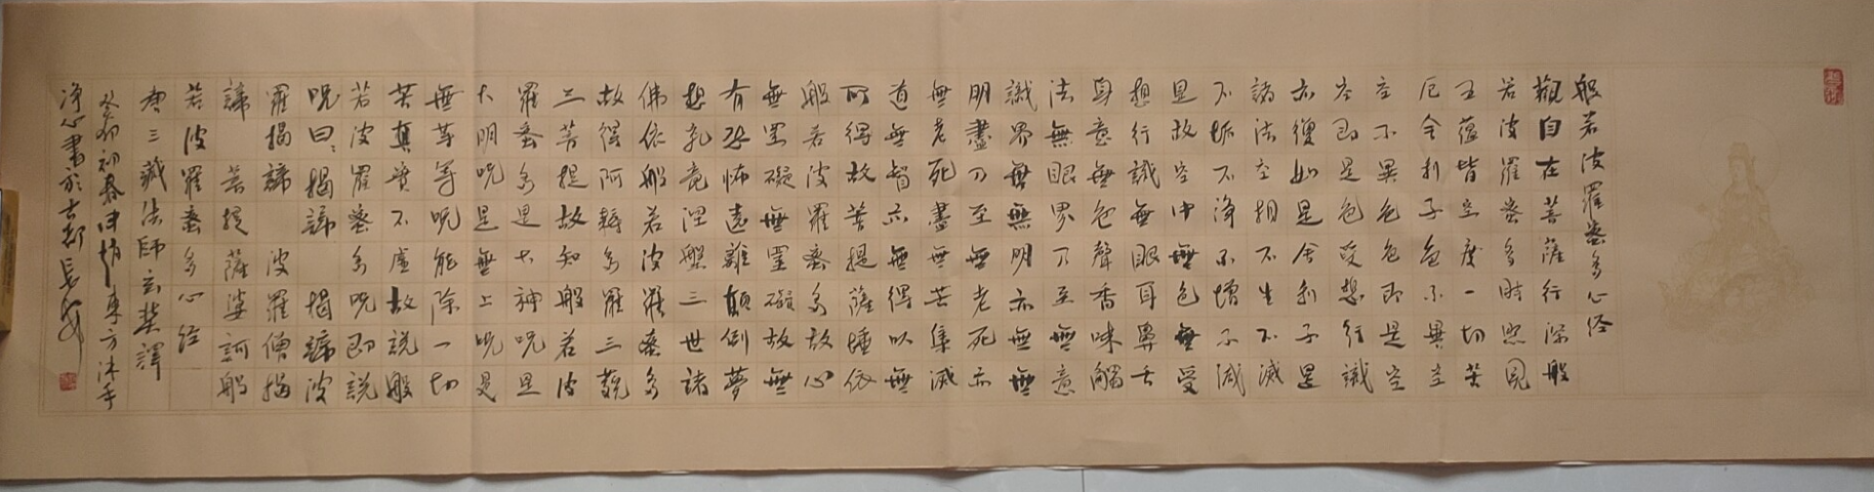 般若波羅蜜多心经
觀自在菩薩行深般
若波羅蜜多時照見
五蕴皆空度一切苦
厄舍利子色不異空
空不異色色即是空
空即是色受想行識
亦復如是舍利子是
諸法空相不生不滅
不垢不净不增不减
是故空中無色無受
想行識無眼耳鼻舌
身意無色聲香味觸
法無眼界乃至無意
識界無無明亦無無
明盡乃至無老死亦
無老死盡無苦集滅
道無智亦無得以無
所得故菩提薩埵依
般若波羅蜜多故心
無罣礙無罣礙故無
有恐怖遠離顛倒夢
想究竟涅槃三世諸
佛依般若波羅蜜多
故得阿耨多羅三藐
三菩提故知般若波
羅蜜多是大神咒是
大明咒是無上咒是
無等等咒能除一切
苦真實不虚故説般
若波羅蜜多咒即説
咒曰揭諦揭諦波
羅揭諦波羅僧揭
諦菩提薩婆訶般
若波羅蜜多心经
唐三藏法師玄奘譯
癸卯初春東方沐手
净心書於古都長安